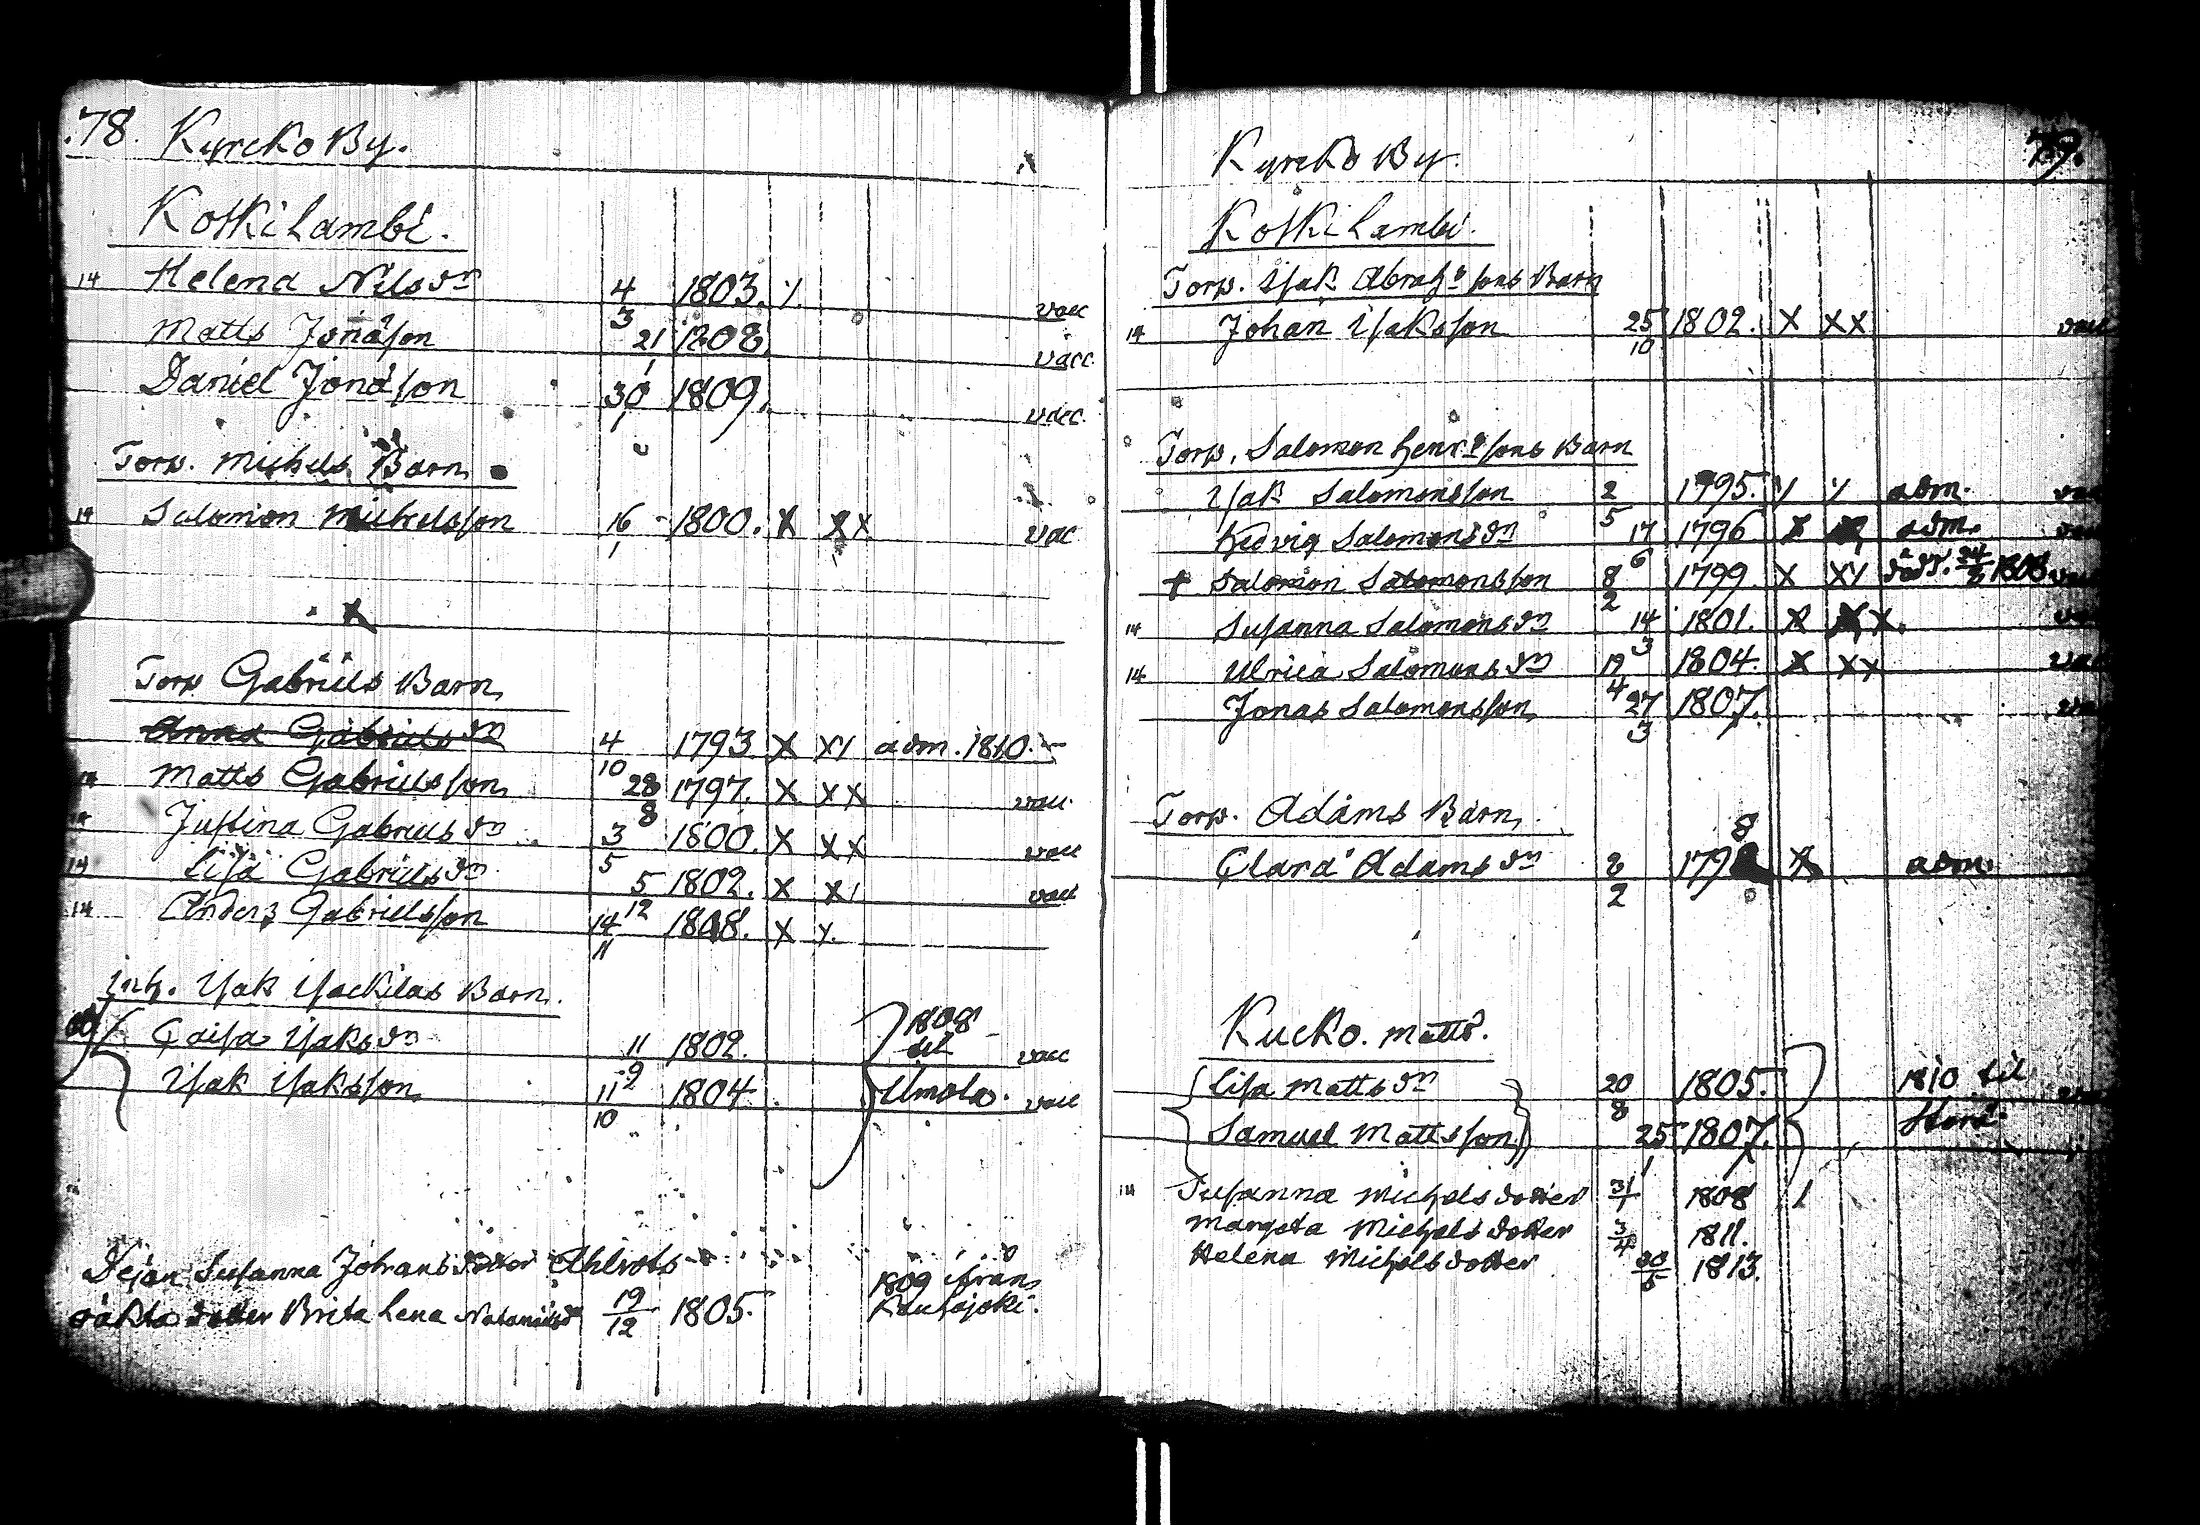 78. Kyrcko By.
Koskilambi.
14 Helena Nilsdr 4/3 1803. vacc
Matts Jonasson 21/1 1808. vacc.
Daniel Jonasson 30/1 1809. vacc.
Torp. Michels Barn
14 Salomon Michelsson 16/1 1800. X XX vac
Torp Gabriels Barn
Anna Gabrielsdr 4/10 1793 X X/ adm. 1810.
Matts Gabrielsson 28/8 1797. X XX vacc.
Justina Gabrielsdr 3/5 1800. X XX vacc
14 Lisa Gabrielsdr 5/12 1802. X X/ vacc
14 Anders Gabrielsson 14/11 1808. X
Inh. Isak Isackilas Barn.
Caisa Isaksdr 11/9 1802. 1808 til vacc
Isak Isaksson 11/10 1804. Ilmola. vacc
Dejan Susanna Johansdotter Ahlrots 1809 ifrån
oäkta dotter Brita Lena 19/12 1805. Kauhajoki.
Kyrcko By. 79.
Koskilambi.
Torp. Isak Abrah:sons Barn
14 Johan Isaksson 25/10 1802. X XX vacc
Torp. Salomon Henr:sons Barn
Isak Salomonsson 2/5 1795. adm.
Hedvig Salomonsdr 17/6 1796 X adm.
+ Salomon Salomonsson 8/2 1799 X X/ död. 1808
14 Susanna Salomonsdr 14/3 1801. X
14 Ulrica Salomonsdr 19/4 1804. X XX
Jonas Salomonsson 27/3 1807.
Torp. Adams Barn
Clara Adamsdr 2/2 1798 X adm.
Kucko. Matts.
Lisa Mattsdr 20/8 1805. 1810 til
Samuel Mattsson 25/1 1807. Storå
14 Susanna Michelsdotter 31/1 1808 /
Margeta Michelsdotter 3/4 1811.
Helena Michelsdotter 30/5 1813.